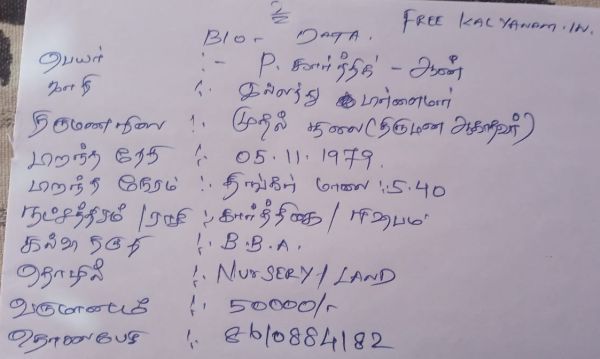 2
FREE KALYANAM.IN.
BIO - DATA.
பெயர் :- P. கார்த்திக் - ஆண்
சாதி :. இல்லத்து பிள்ளைமார்
திருமணநிலை :. முதல் தலை (திருமணம் ஆகாதவர்)
பிறந்த தேதி :. 05.11.1979.
பிறந்த நேரம் :. திங்கள் மாலை :5.40
நட்சத்திரம் / ராசி :. கார்த்திகை / ரிஷபம்
கல்வி தகுதி :. B.B.A.
தொழில் :. NURSERY / LAND
வருமானம் :. 50000/-
தொலைபேசி :. 8610884182